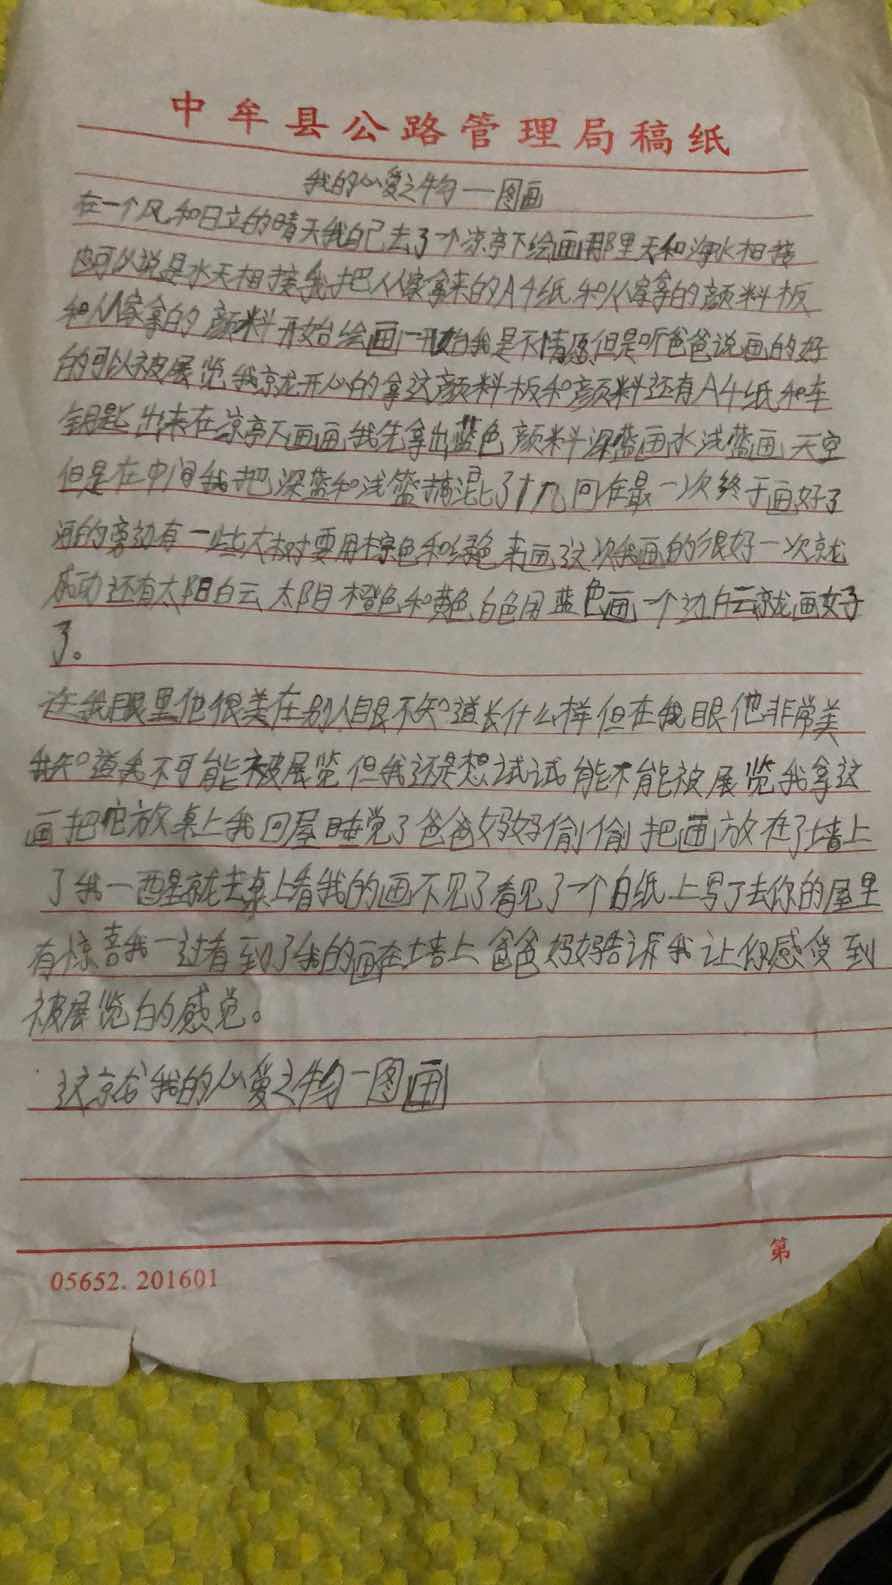 中牟县公路管理局稿纸
我的心爱之物一图画
在一个风和日立的晴天我自己去了一个凉亭下绘画那里天和海水相接
也可以说是水天相接我把从家拿来的A4纸和从家拿的颜料板
和从家拿的颜料开始绘画一开始我是不情愿但是听爸爸说画的好
的可以被展览我就开心的拿这颜料板和颜料还有A4纸和车
钥匙出来在凉亭下画画我先拿出蓝色颜料深蓝画水浅蓝画天空
但是在中间我把深蓝和浅篮搞混了十九回在最一次终于画好了
河的旁边有一些大树要用棕色和绿色来画这次我画的很好一次就
成功还有太阳白云太阳橙色和黄色白色用蓝色画一个边白云就画好了
了。
在我眼里他很美在别人眼不知道长什么样但在我眼他非常美
我知道我不可能被展览但我还是想试试能不能被展览我拿这
画把它放桌上我回屋睡觉了爸爸妈妈偷偷把画放在了墙上
了我一醒就去桌上看我的画不见了看见了一个白纸上写了去你的屋里
有惊喜我一过看到了我的画在墙上爸爸妈妈告诉我让你感受到
被展览的感觉。
这就我的心爱之物一图画
第
05652.201601